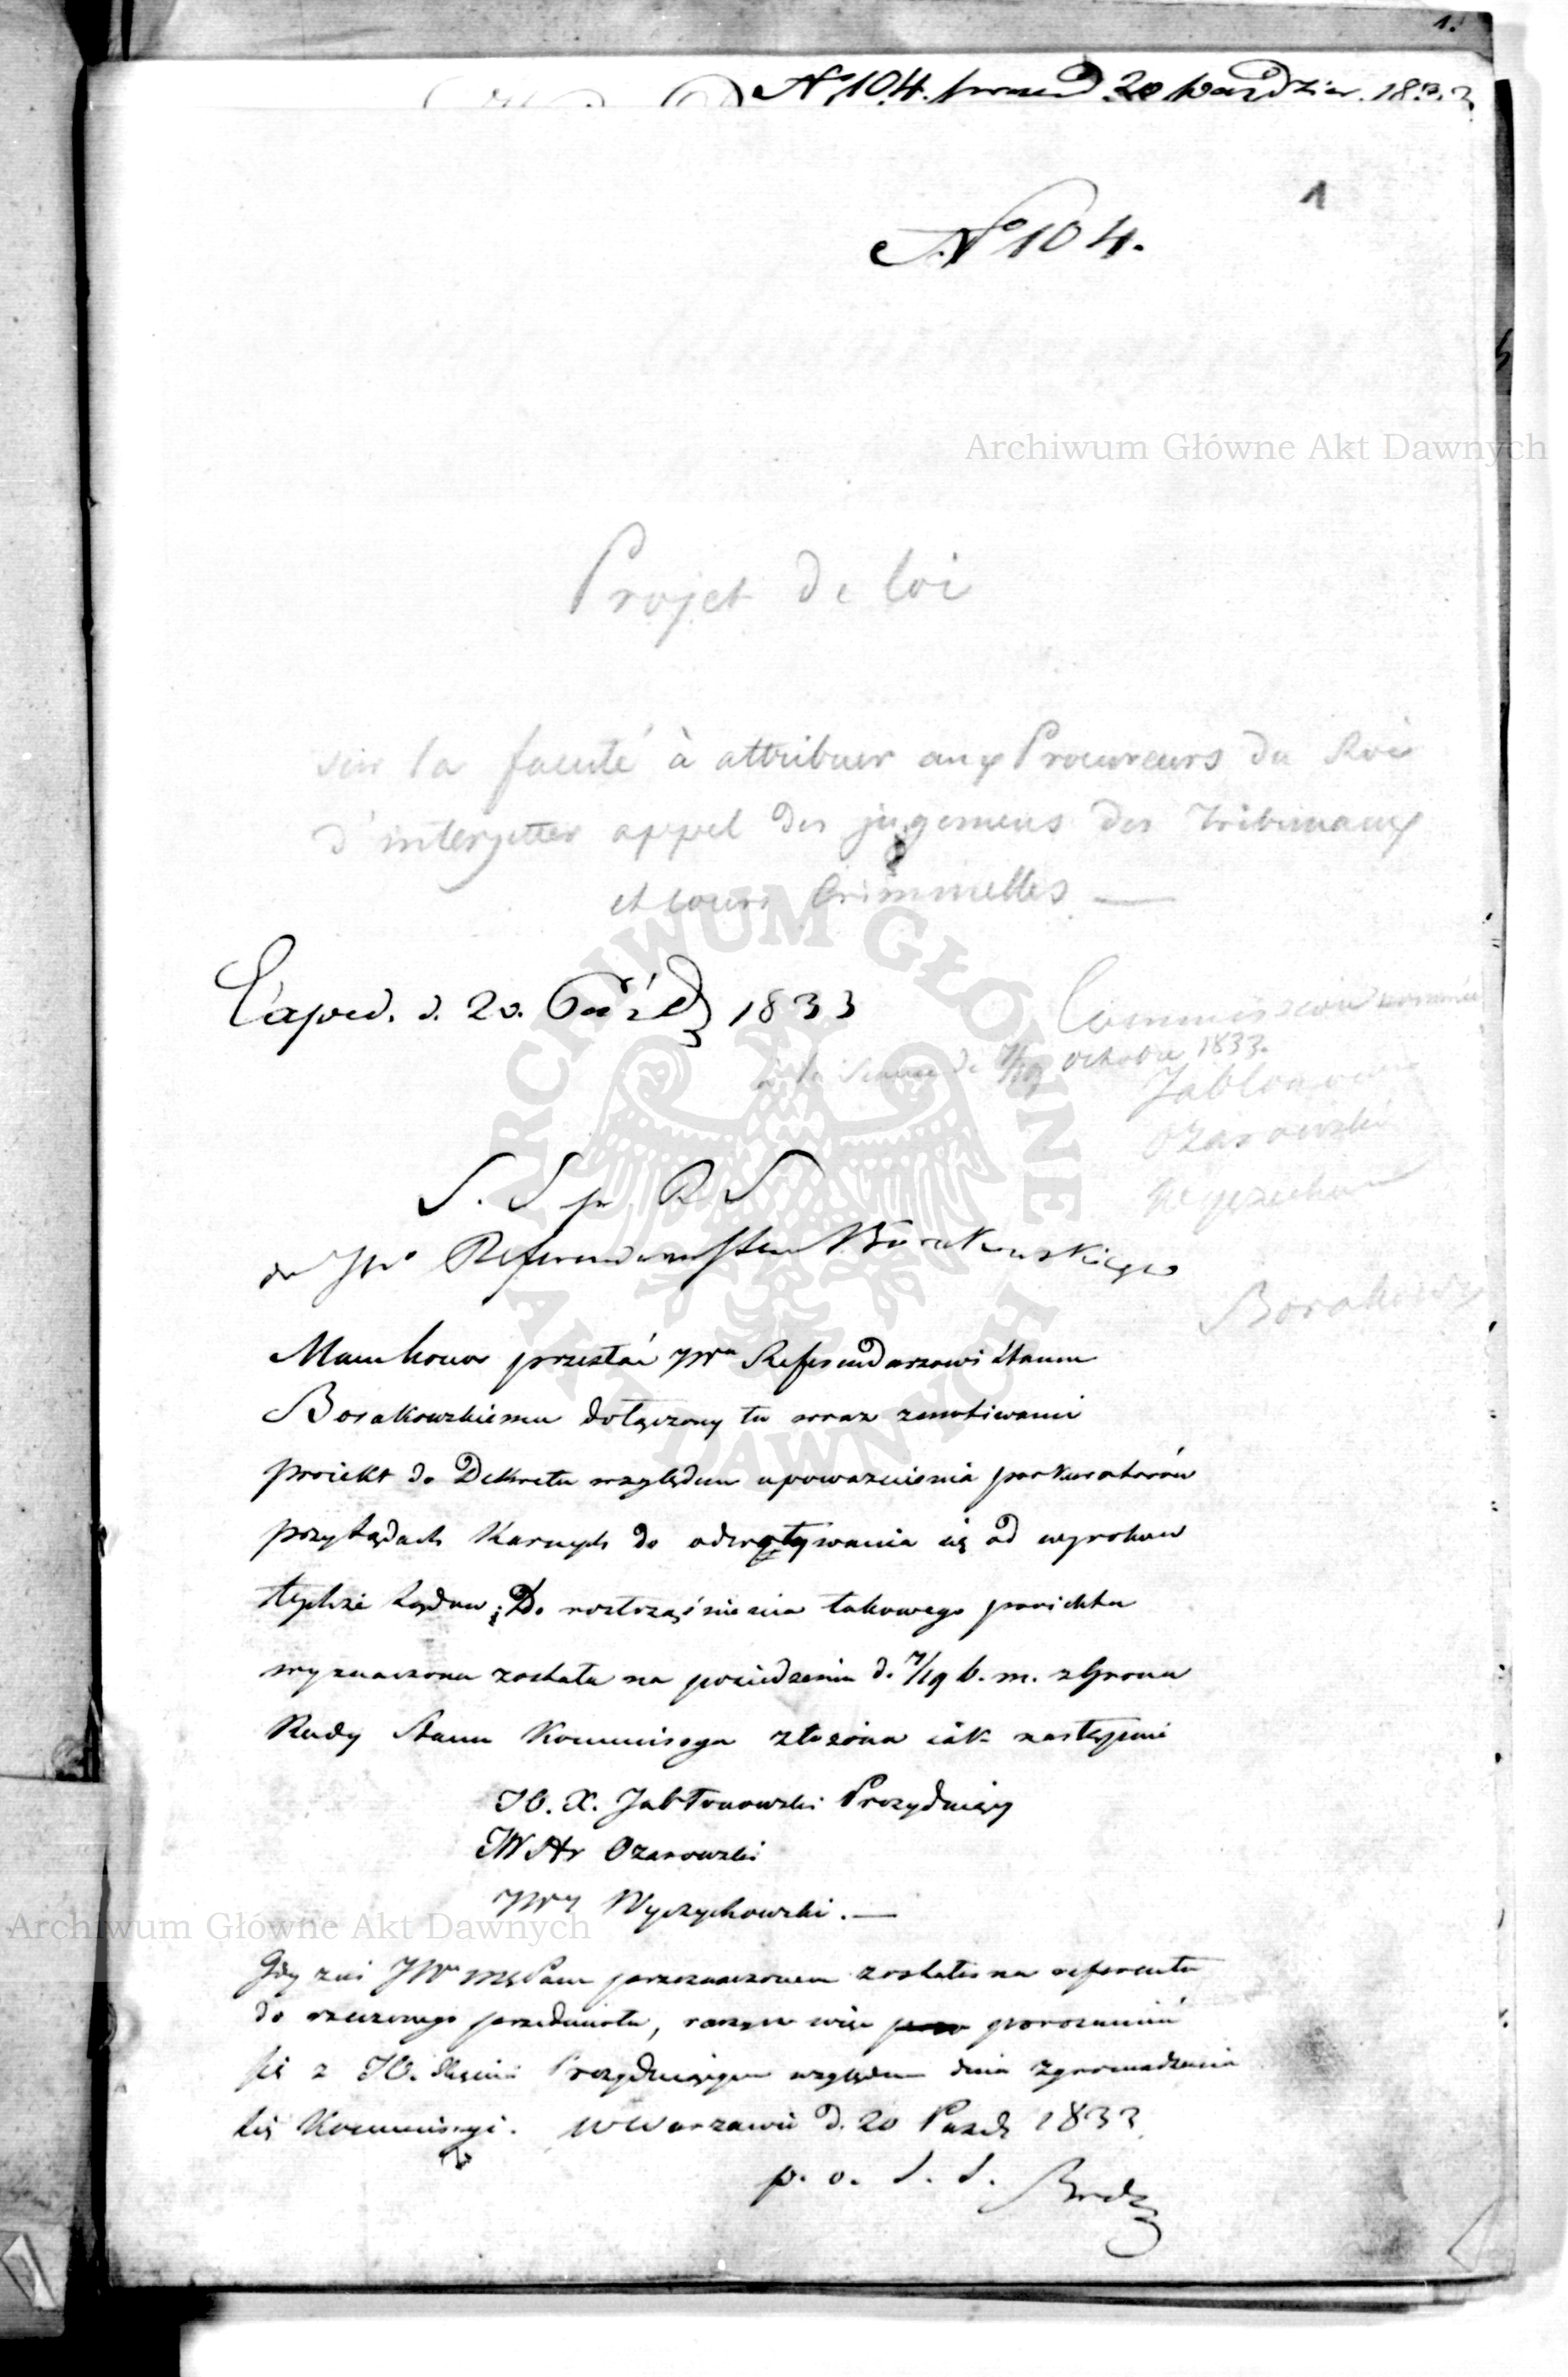 1.
N° 104. 20 Października 1833
1
N° 104.
Archiwum Główne Akt Dawnych
Projet de loi
sur la faculté à attribuer aux Procureurs du Roi
d'interjetter appel des jugemens des Tribunaux
et Cours Criminelles —
Exped. d. 20. Paźdz 1833
Commission nommée
à la Séance du 7/19 octobre 1833.
Jabłonowski
Ożarowski
Wyczechowski
Borakowski
S. S. pr R S
do JWo Referendarza Stanu Borakowskiego
Mam honor przesłać JWu Referendarzowi Stanu
Borakowskiemu dołączony tu wraz z motiwami
proiekt do Dekretu względem upoważnienia prokuratorów
przy Sądach Karnych do odwoływania się od wyroków
tychże Sądów; Do roztrząśnienia takowego proiektu
wyznaczona została na posiedzeniu d. 7/19 b. m. z Grona
Rady Stanu Kommissya złożona iak następuie
JO. X. Jabłonowski Prezyduiący
JW Hr Ożarowski
JWy Wyczechowski. —
Gdy zaś JWn Pan przeznaczonym zostałeś na referenta
do rzeczonego przedmiotu, raczysz więc porozumieć
się z JO. Xięciem Prezyduiącym względem dnia zgromadzenia
się Kommissyi. w Warszawie d. 20 Paźdz 1833
p. o. S. S.
Archiwum Główne Akt Dawnych
ARCHIWUM GŁÓWNE
AKT DAWNYCH